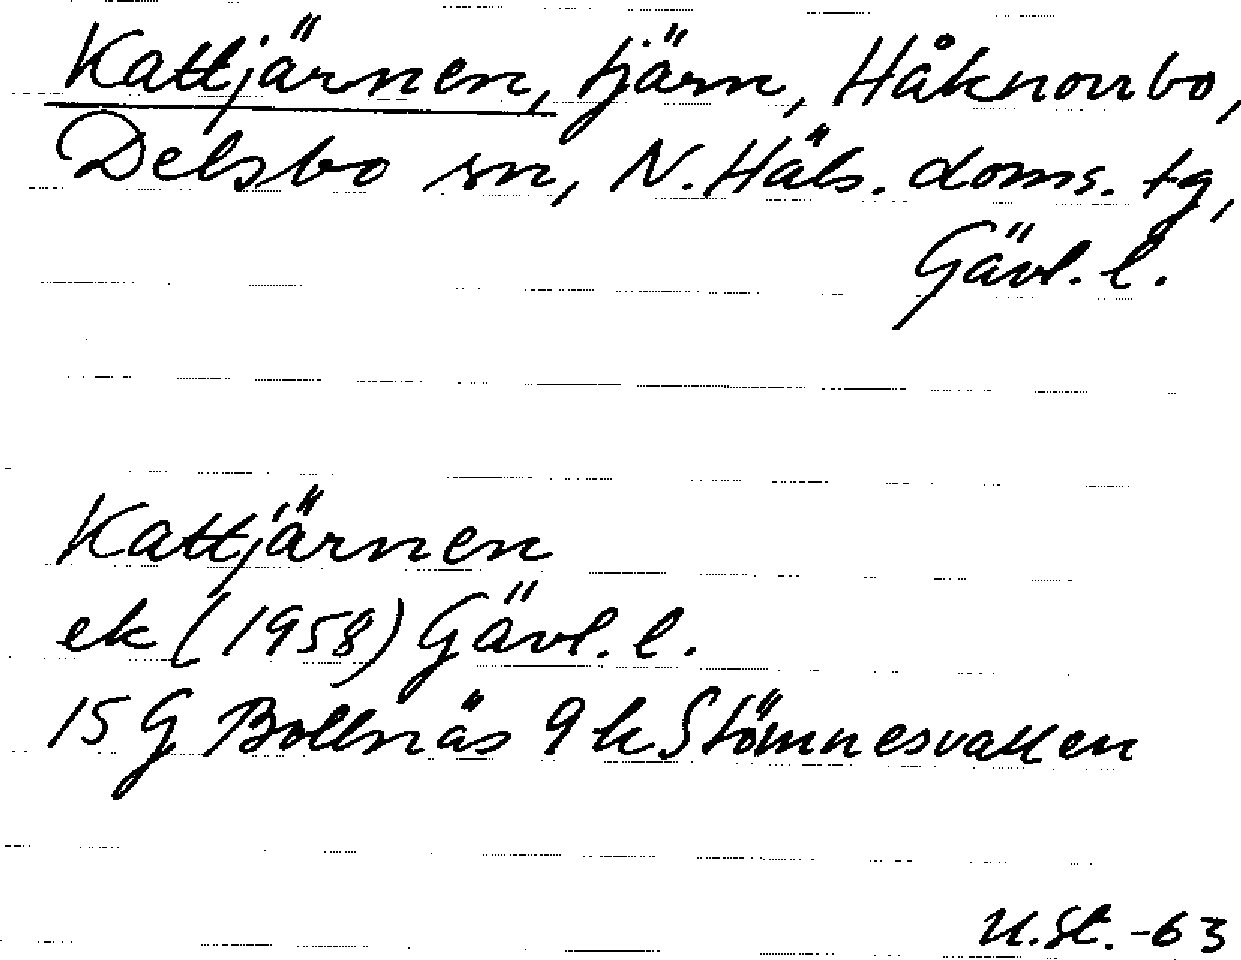 Kattjärnen, tjärn, Håknorrbo,
Delsbo sn, N. Häls. doms. tg,
Gävl. l.
Kattjärnen
ek (1958) Gävl. l.
15 G Bollnäs 9 k Stömnesvallen
U.St. -63